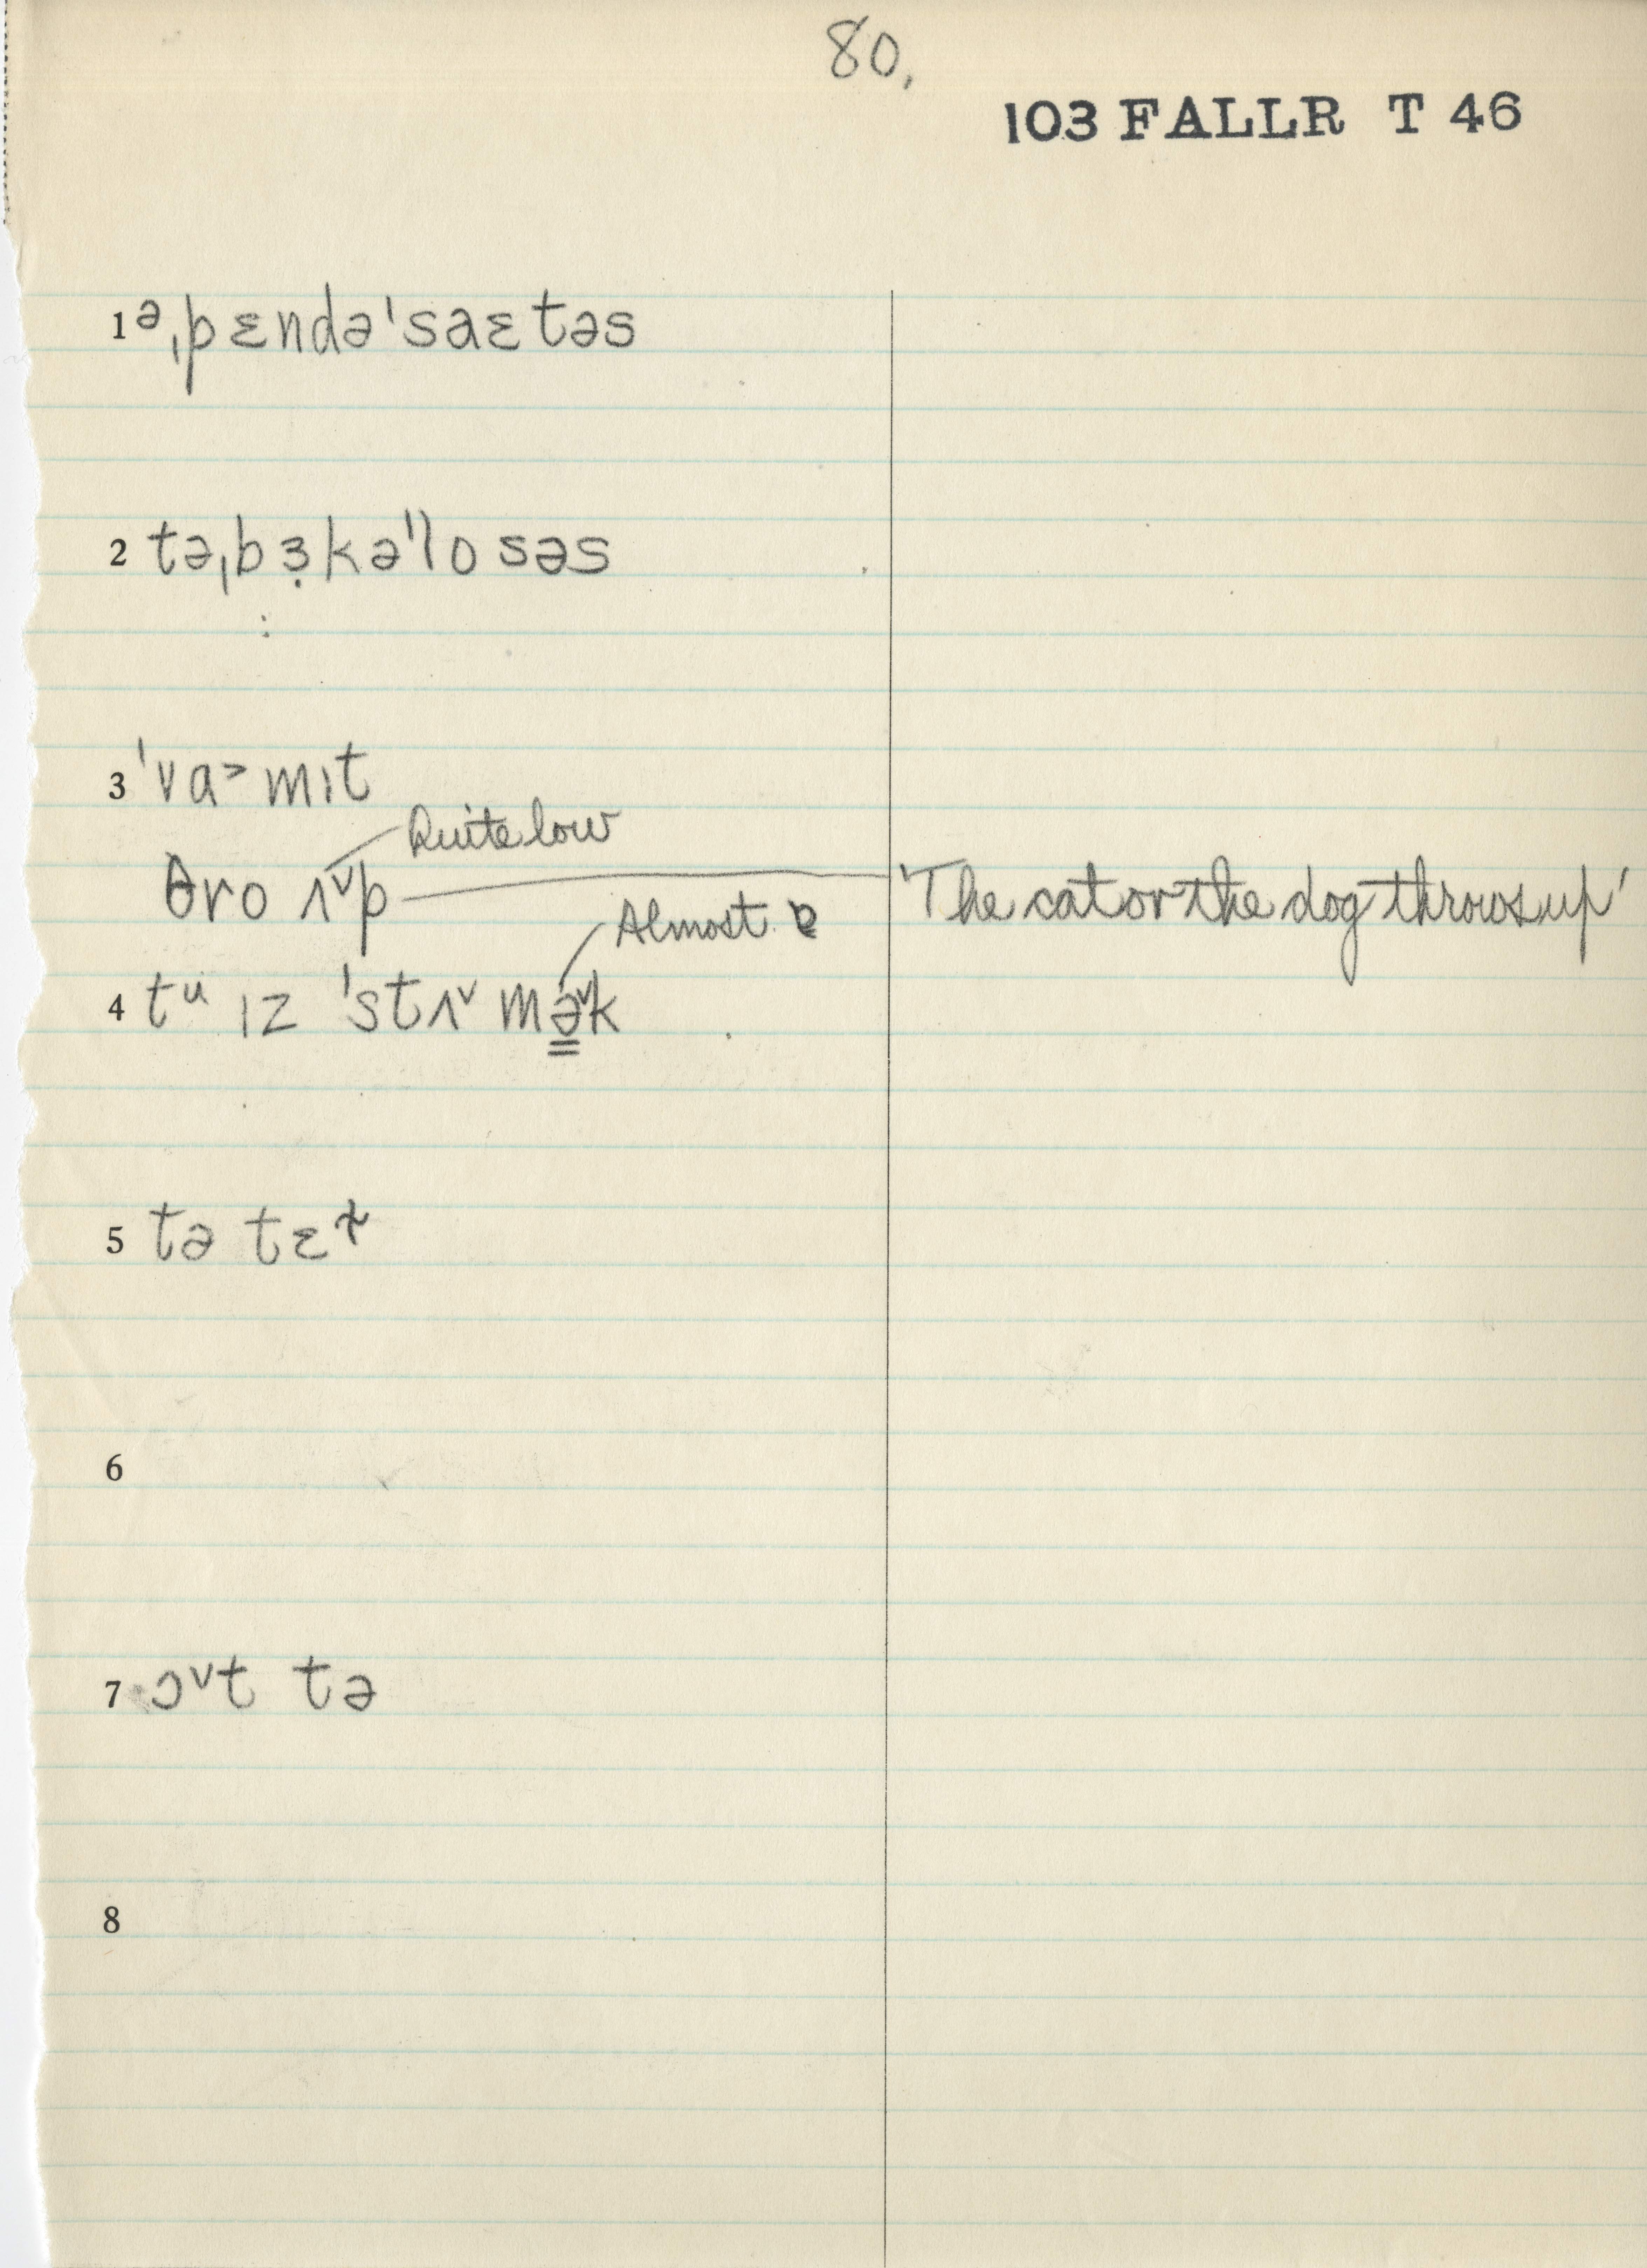 80.
103 FALLR T 46
1 ə ˌpɛndəˈsaɛtəs
2 təˌbɜ̣kəˈlosəs
3 ˈva˃mɪt
Quite low
θro ʌ˅p 'The cat or the dog throws up'
Almost ɐ
4 tᵘ ɪz ˈstʌ˅mə̳˅k
5 tə tɛ
6
7 ɔ˅t tə
8